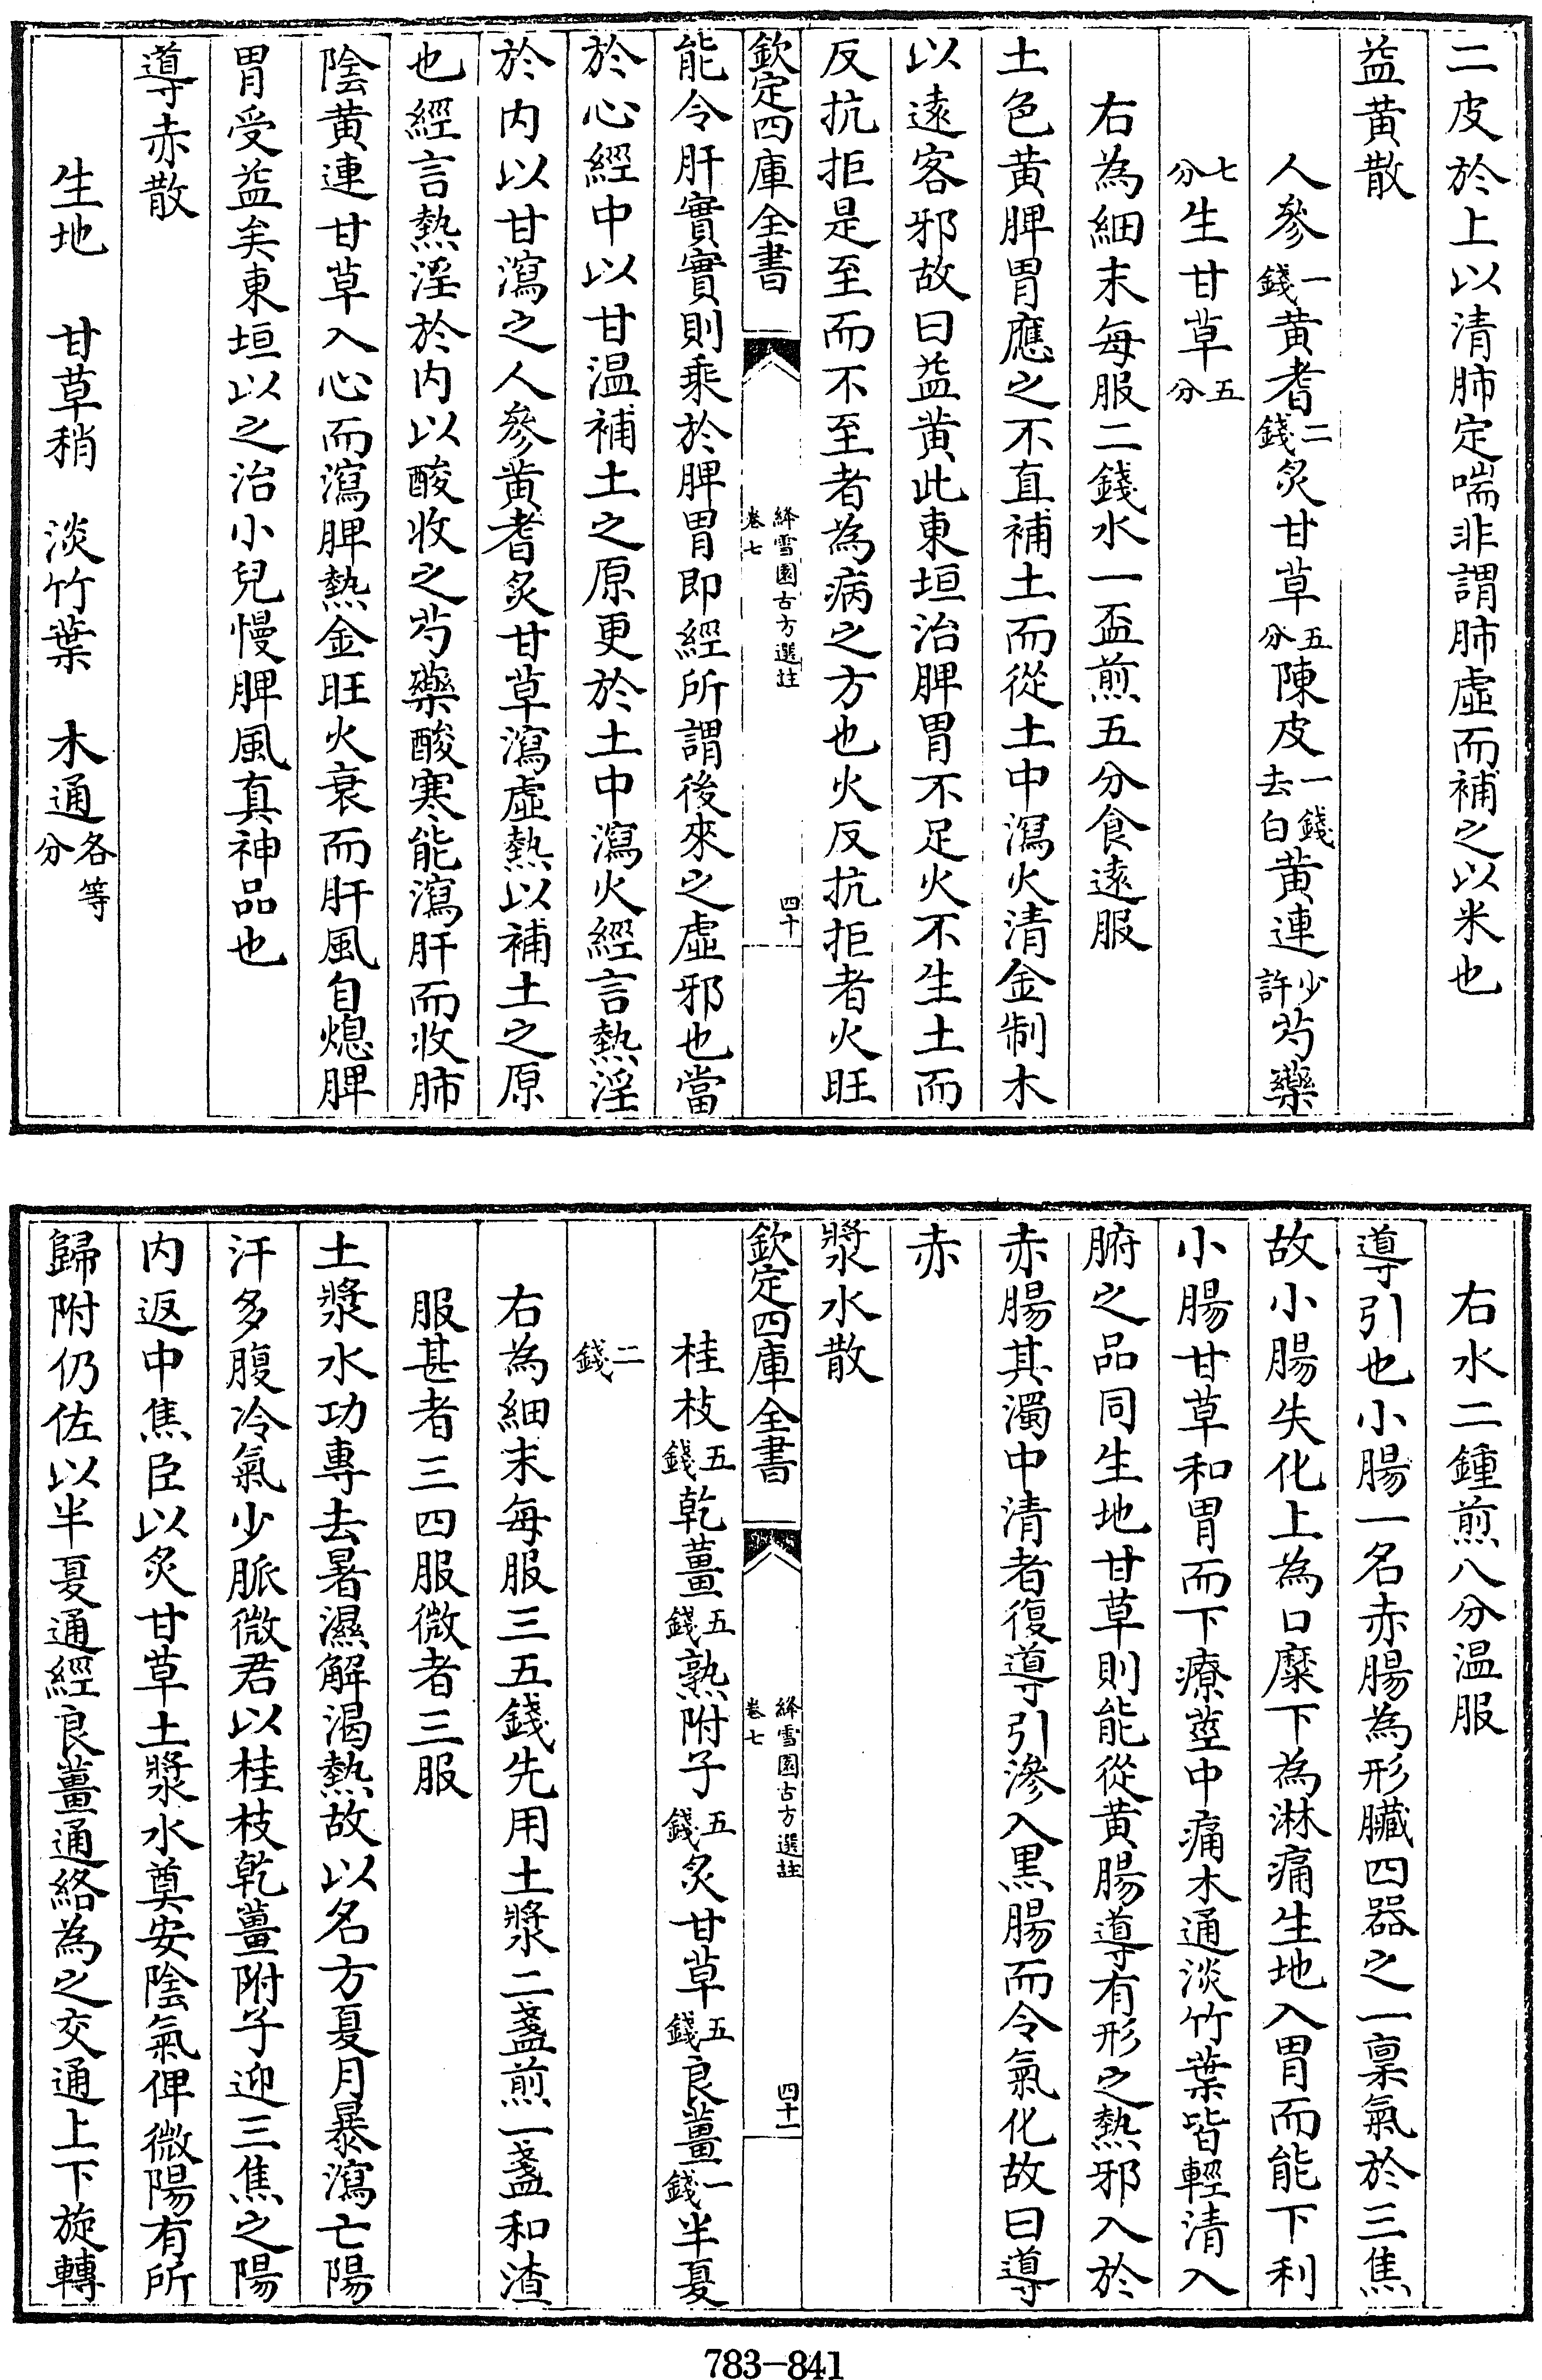 二皮於上以清肺定喘非謂肺虛而補之以米也
益黄散
人參一錢黄耆二錢炙甘草五分陳皮一錢去白黄連少許芍藥
七分生甘草五分
右為細末每服二錢水一盃煎五分食遠服
土色黄脾胃應之不直補土而從土中瀉火清金制木
以遠客邪故曰益黄此東垣治脾胃不足火不生土而
反抗拒是至而不至者為病之方也火反抗拒者火旺
欽定四庫全書 絳雪園古方選註 卷七 四十
能令肝實實則乘於脾胃即經所謂後來之虛邪也當
於心經中以甘温補土之原更於土中瀉火經言熱淫
於内以甘瀉之人參黄耆炙甘草瀉虛熱以補土之原
也經言熱淫於内以酸收之芍藥酸寒能瀉肝而收肺
陰黄連甘草入心而瀉脾熱金旺火衰而肝風自熄脾
胃受益矣東垣以之治小兒慢脾風真神品也
導赤散
生地 甘草稍 淡竹葉 木通各等分
右水二鍾煎八分温服
導引也小腸一名赤腸為形臟四器之一稟氣於三焦
故小腸失化上為口糜下為淋痛生地入胃而能下利
小腸甘草和胃而下療莖中痛木通淡竹葉皆輕清入
腑之品同生地甘草則能從黄腸導有形之熱邪入於
赤腸其濁中清者復導引滲入黒腸而令氣化故曰導
赤
漿水散
欽定四庫全書 絳雪園古方選註 卷七 四十一
桂枝五錢乾薑五錢熟附子五錢炙甘草五錢良薑一錢半夏
二錢
右為細末每服三五錢先用土漿二盞煎一盞和渣
服甚者三四服微者三服
土漿水功專去暑濕解渴熱故以名方夏月暴瀉亡陽
汗多腹冷氣少脈微君以桂枝乾薑附子迎三焦之陽
内返中焦臣以炙甘草土漿水奠安陰氣俾微陽有所
歸附仍佐以半夏通經良薑通絡為之交通上下旋轉
783-841